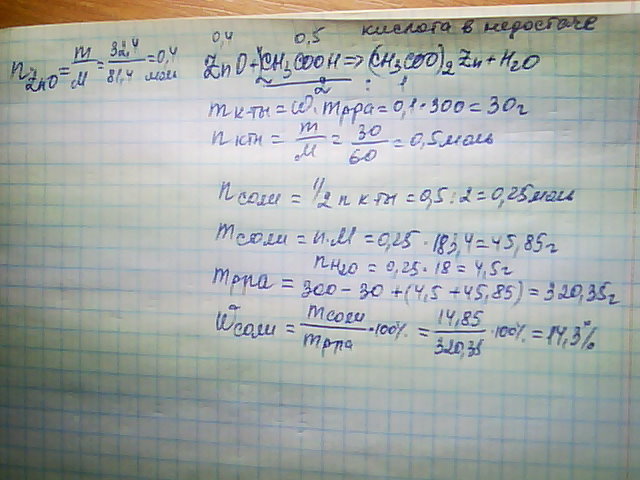 кислота в недостаче
0,4 0,5
n ZnO = m/M = 32,4/81,4 = 0,4 моль
ZnO + 2CH₃COOH => (CH₃COO)₂Zn + H₂O
2 : 1
m к-ты = ω · m р-ра = 0,1 · 300 = 30г
n к-ты = m/M = 30/60 = 0,5 моль
n соли = 1/2 n к-ты = 0,5 : 2 = 0,25 моль
m соли = n · M = 0,25 · 183,4 = 45,85г
n H₂O = 0,25 · 18 = 4,5г
m р-ра = 300 - 30 + (4,5 + 45,85) = 320,35г
W соли = m соли/m р-ра · 100% = 14,85/320,35 · 100% = 14,3%